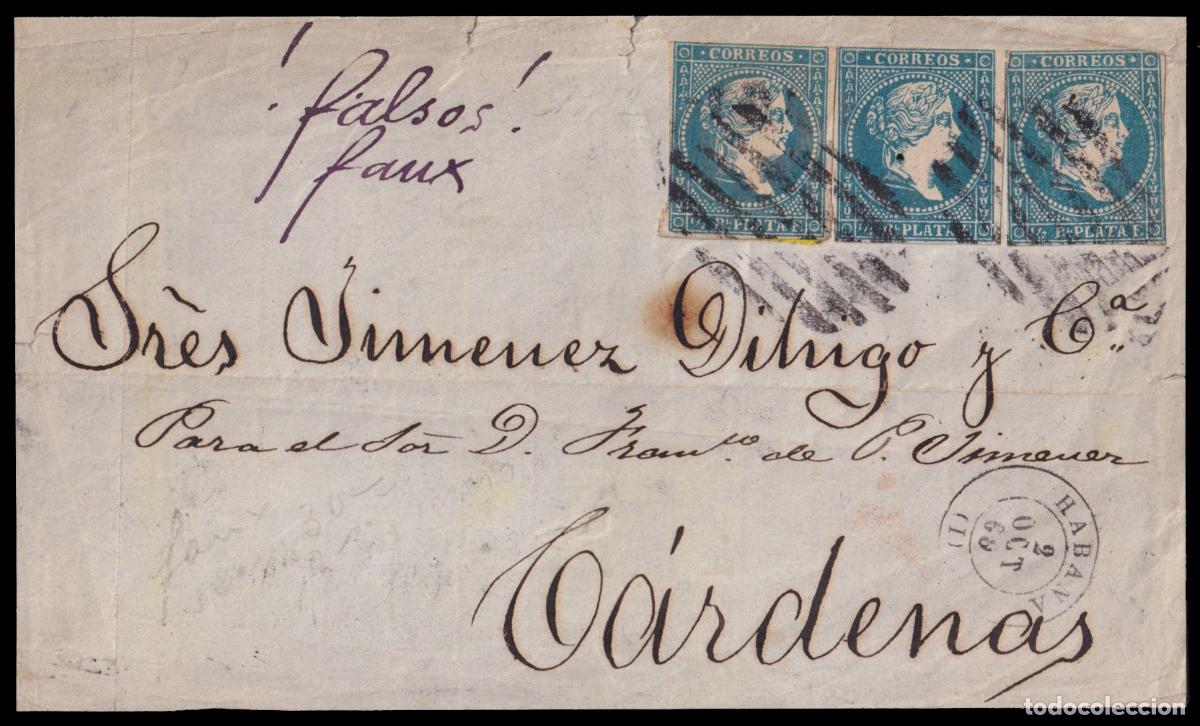 ¡falsos!
faux
CORREOS
½ Rl PLATA F.
CORREOS
½ Rl PLATA F.
CORREOS
½ Rl PLATA F.
Srès Jimenez Dihigo y Cª
Para el Sor D. Franco. de P. Jimenez
HABANA
2
OCT
(1)
faux
Cárdenas
todocoleccion